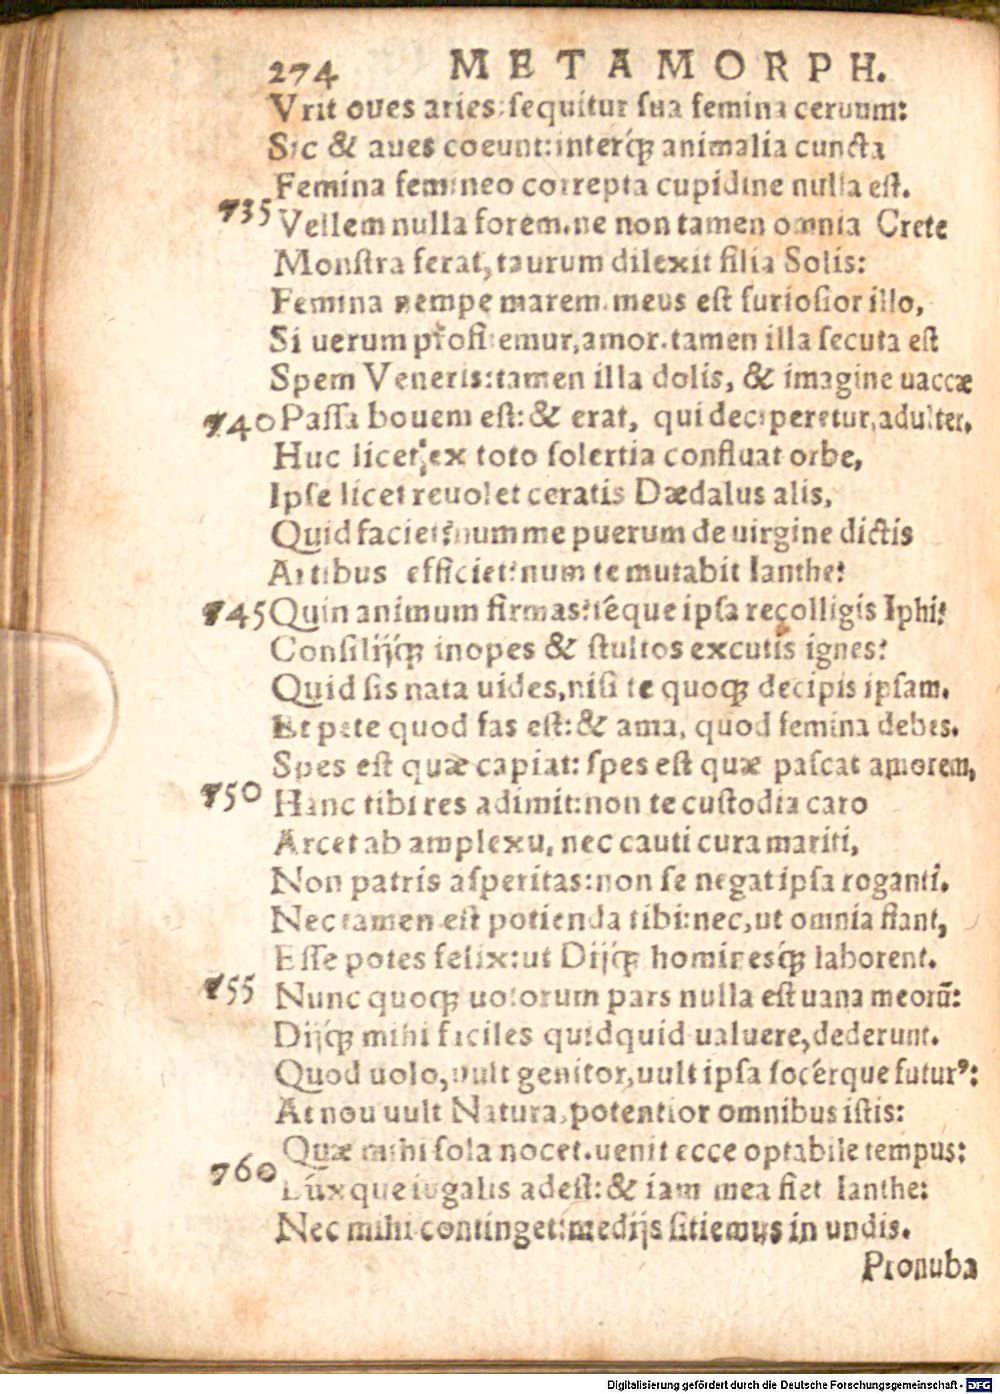 274 METAMORPH.
Vrit oues aries: ſequitur ſua femina ceruum:
Sic & aues coeunt: interq́ꝫ animalia cuncta
Femina femineo correpta cupidine nulla eſt.
735 Vellem nulla forem. ne non tamen omnia Crete
Monſtra ferat, taurum dilexit filia Solis:
Femina nempe marem. meus eſt furioſior illo,
Si uerum profitemur, amor. tamen illa ſecuta eſt
Spem Veneris: tamen illa dolis, & imagine uaccæ
740 Paſſa bouem eſt: & erat, qui deciperetur, adulter.
Huc licet ex toto ſolertia confluat orbe,
Ipſe licet reuolet ceratis Dædalus alis,
Quid faciet? num me puerum de uirgine dictis
Artibus efficiet? num te mutabit Ianthe?
745 Quin animum firmas? téque ipſa recolligis Iphi?
Conſilijq́ꝫ inopes & ſtultos excutis ignes?
Quid ſis nata uides, niſi te quoqꝫ decipis ipſam.
Et pete quod fas eſt: & ama, quod femina debes.
Spes eſt quæ capiat: ſpes eſt quæ paſcat amorem,
750 Hanc tibi res adimit: non te cuſtodia caro
Arcet ab amplexu, nec cauti cura mariti,
Non patris aſperitas: non ſe negat ipſa roganti.
Nec tamen eſt potienda tibi: nec, ut omnia fiant,
Eſſe potes felix: ut Dijq́ꝫ homineſq́ꝫ laborent.
755 Nunc quoqꝫ uotorum pars nulla eſt uana meorū:
Dijq́ꝫ mihi faciles quidquid ualuere, dederunt.
Quod uolo, uult genitor, uult ipſa ſocérque futurꝰ:
At nou uult Natura, potentior omnibus iſtis:
Quæ mihi ſola nocet. uenit ecce optabile tempus:
760 Lúxque iugalis adeſt: & iam mea fiet Ianthe:
Nec mihi continget: medijs ſitiemus in undis.
Pronuba
Digitalisierung gefördert durch die Deutsche Forschungsgemeinschaft - DFG